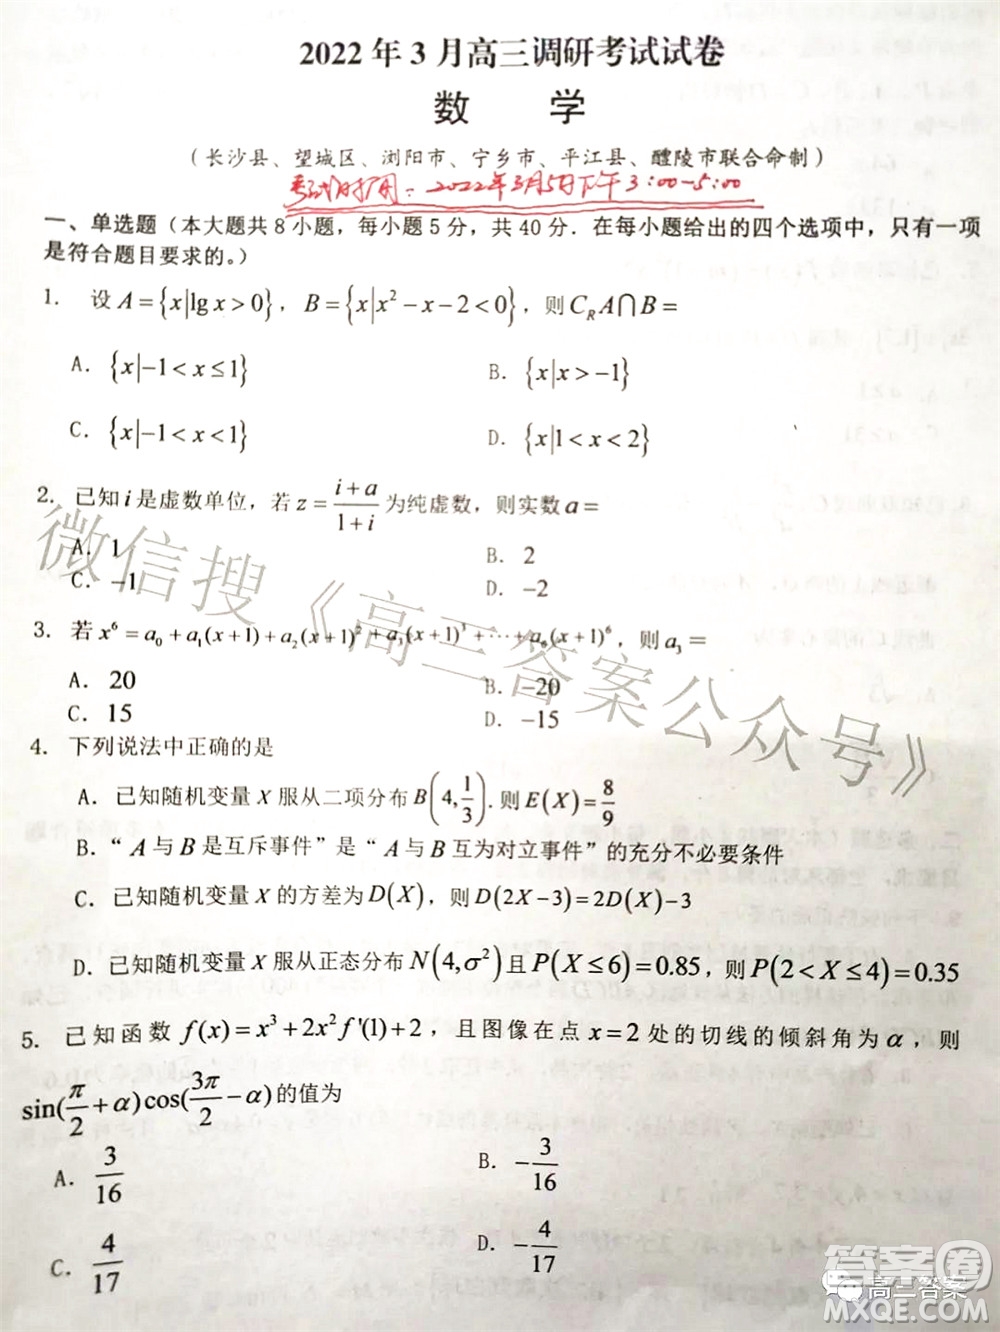 2022 年 3 月高三调研考试试卷
数 学
（长沙县、望城区、浏阳市、宁乡市、平江县、醴陵市联合命制）
考试时间：2022年3月5日下午3:00-5:00
一、单选题（本大题共 8 小题，每小题 5 分，共 40 分. 在每小题给出的四个选项中，只有一项
是符合题目要求的。）
1. 设 A={x|lg x>0}，B={x|x²-x-2<0}，则 C_R A∩B=
A. {x|-1<x≤1}
B. {x|x>-1}
C. {x|-1<x<1}
D. {x|1<x<2}
2. 已知 i 是虚数单位，若 z=(i+a)/(1+i) 为纯虚数，则实数 a=
A. 1
B. 2
C. -1
D. -2
3. 若 x⁶=a₀+a₁(x+1)+a₂(x+1)²+a₃(x+1)³+⋯+a₆(x+1)⁶，则 a₃=
A. 20
B. -20
C. 15
D. -15
4. 下列说法中正确的是
A. 已知随机变量 X 服从二项分布 B(4,1/3). 则 E(X)=8/9
B. “ A 与 B 是互斥事件”是“ A 与 B 互为对立事件”的充分不必要条件
C. 已知随机变量 X 的方差为 D(X)，则 D(2X-3)=2D(X)-3
D. 已知随机变量 X 服从正态分布 N(4,σ²) 且 P(X≤6)=0.85，则 P(2<X≤4)=0.35
5. 已知函数 f(x)=x³+2x²f'(1)+2，且图像在点 x=2 处的切线的倾斜角为 α，则
sin(π/2+α)cos(3π/2-α)的值为
A. 3/16
B. -3/16
C. 4/17
D. -4/17
微信搜《高三答案公众号》
答案圈
高三答案
MXQE.COM